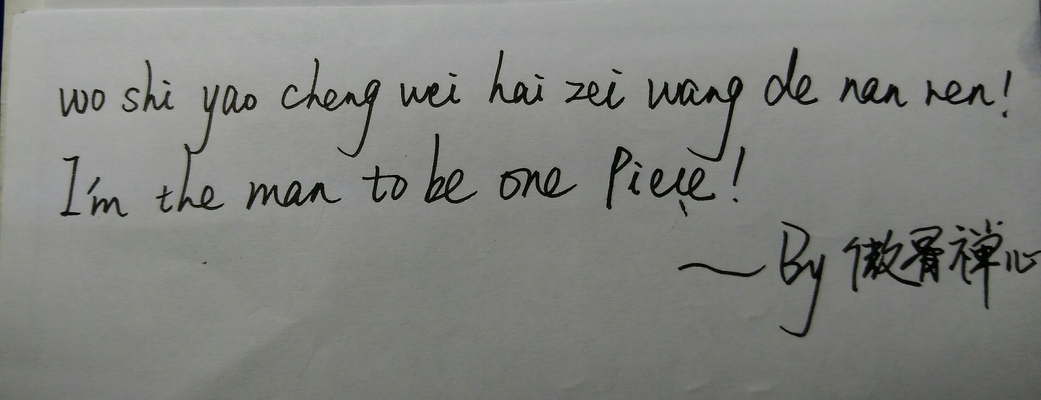 wo shi yao cheng wei hai zei wang de nan ren!
I'm the man to be one Piece!
~By 傲骨禅心